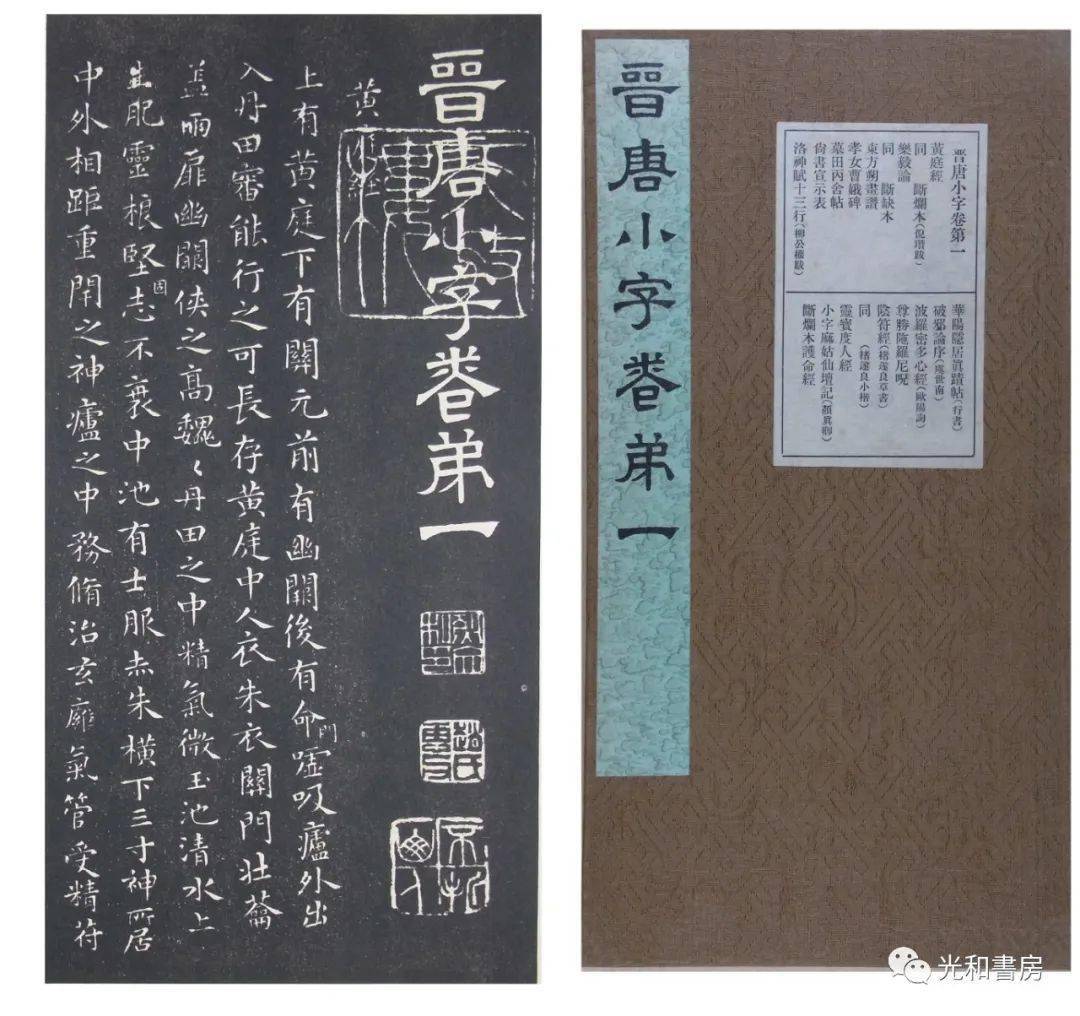 晉唐小字卷弟一
上有黃庭下有關元前有幽闕後有命門噓吸廬外出
入丹田審能行之可長存黃庭中人衣朱衣關門壯蘥
蓋兩扉幽闕俠之高魏〻丹田之中精氣微玉池清水上
生肥靈根堅固志不衰中池有士服赤朱橫下三寸神所居
中外相距重閇之神廬之中務脩治玄廱氣管受精符
晉唐小字卷弟一
晋唐小字卷第一
黃庭經
同 斷爛本(倪瓚跋)
樂毅論
同 斷缺本
東方朔畫讚
孝女曹娥碑
墓田丙舍帖
尙書宣示表
洛神賦十三行(柳公權跋)
華陽隱居眞蹟帖(行書)
破邪論序(虞世南)
波羅密多心經(歐陽詢)
尊勝陁羅尼呪
陰符經(褚遂良草書)
同 (褚遂良小楷)
靈寶度人經
小字麻姑仙壇記(顏眞卿)
斷爛本護命經
光和書房